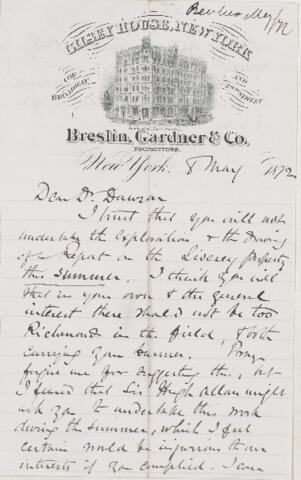 GILSEY HOUSE, NEW YORK
COR BROADWAY
AND 29TH STREET
Breslin, Gardner & Co.
PROPRIETORS.
New York. 8 May 1872
Dear Dr. Dawson
I trust that you will not
undertake the exploration & the drawing
of a Report on the Liverey property
this summer. I think you will
that in your own & the general
interest there should not be two
Richmonds in the field, & both
carrying your banner. Pray
forgive me for suggesting this, but
I feared that Sir Hugh Allan might
ask you to undertake this work
during the summer, which I feel
certain would be injurious to our
interests if you complied. I can